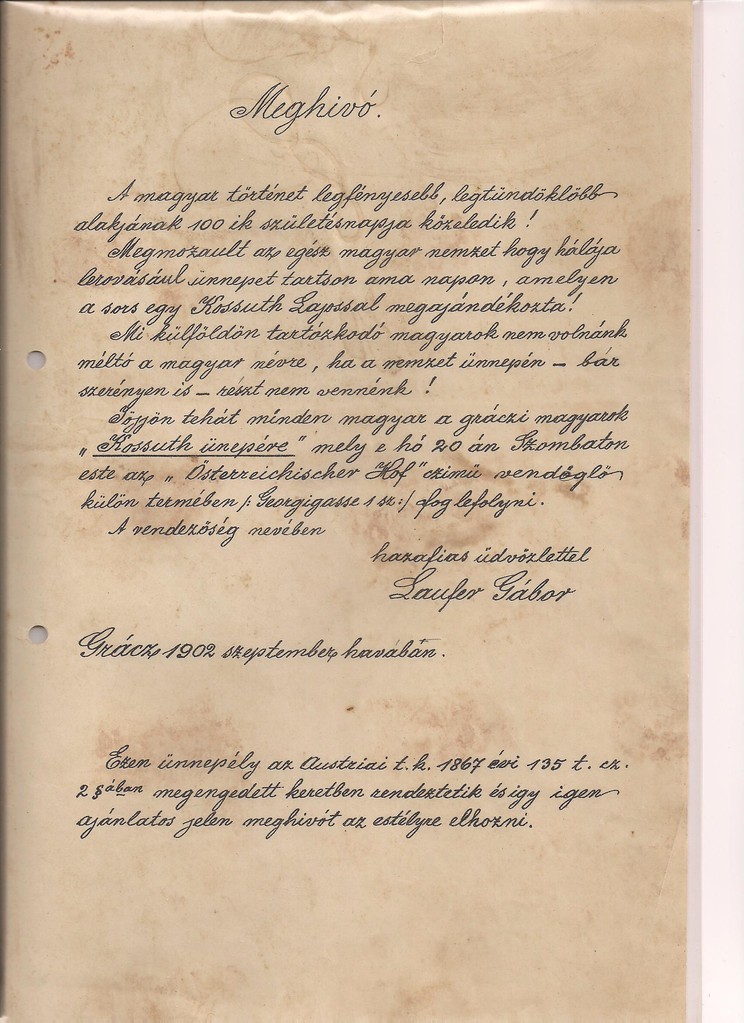 Meghivó.
A magyar történet legfényesebb, legtündöklöbb
alakjának 100 ik születésnapja közeledik!
Megmozault az egész magyar nemzet hogy hálája
lerovásául ünnepet tartson ama napon, amelyen
a sors egy Kossuth Lajossal megajándékozta!
Mi külföldön tartózkodó magyarok nem volnánk
méltó a magyar névre, ha a nemzet ünnepén – bár
szerényen is – részt nem vennénk!
Jöjjön tehát minden magyar a gráczi magyarok
„Kossuth ünepére" mely e hó 20 án Szombaton
este az „Österreichischer Hof" czimü vendéglö
külön termében /: Georgigasse 1 sz :/ fog lefolyni.
A vendezöség nevében
hazafias üdvözlettel
Laufer Gábor
Grácz 1902 szeptember havábán.
Ezen ünnepély az Austriai t. k. 1867 évi 135 t. cz.
2 §ában megengedett keretben rendeztetik és igy igen
ajánlatos jelen meghivót az estélyre elhozni.